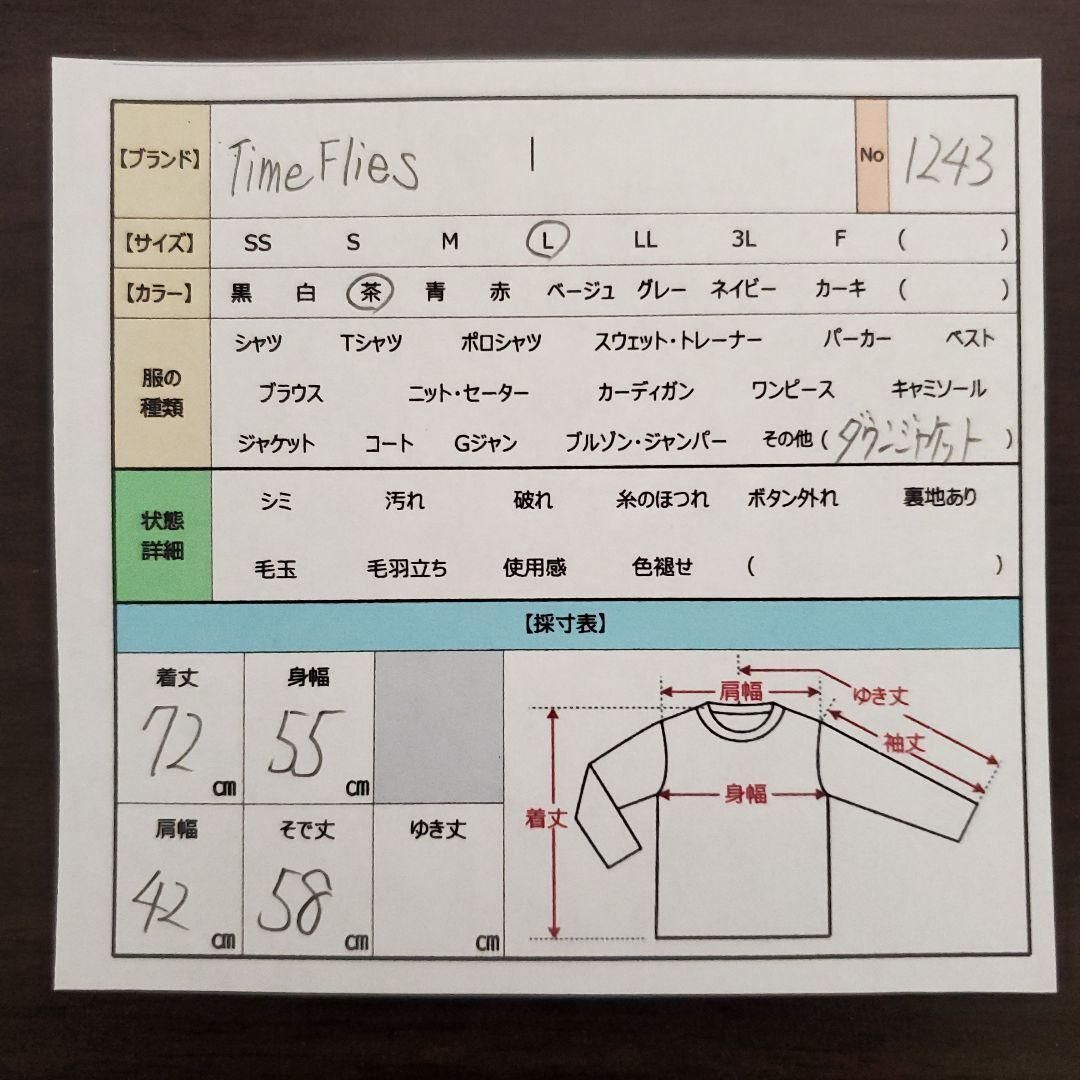 【ブランド】 Time Flies | No 1243
【サイズ】 SS S M L LL 3L F ( )
【カラー】 黒 白 茶 青 赤 ベージュ グレー ネイビー カーキ ( )
服の
種類
シャツ Tシャツ ポロシャツ スウェット・トレーナー パーカー ベスト
ブラウス ニット・セーター カーディガン ワンピース キャミソール
ジャケット コート Gジャン ブルゾン・ジャンパー その他 ( ダウンジャケット )
状態
詳細
シミ 汚れ 破れ 糸のほつれ ボタン外れ 裏地あり
毛玉 毛羽立ち 使用感 色褪せ ( )
【採寸表】
着丈 身幅
72 cm 55 cm
肩幅 そで丈 ゆき丈
42 cm 58 cm cm
肩幅 ゆき丈
袖丈
身幅
着丈